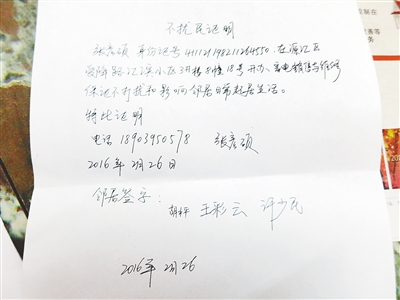 不扰民证明
张彦硕 身份证号411121198211264550,在源汇区
受降路江滨小区3#楼8幢18号开办,家电销售与维修
保证不打扰和影响邻居日常起居生活。
特此证明
电话18903950578 张彦硕
2016年2月26日
邻居签字:
胡秤 王彩云 许少民
2016年2月26